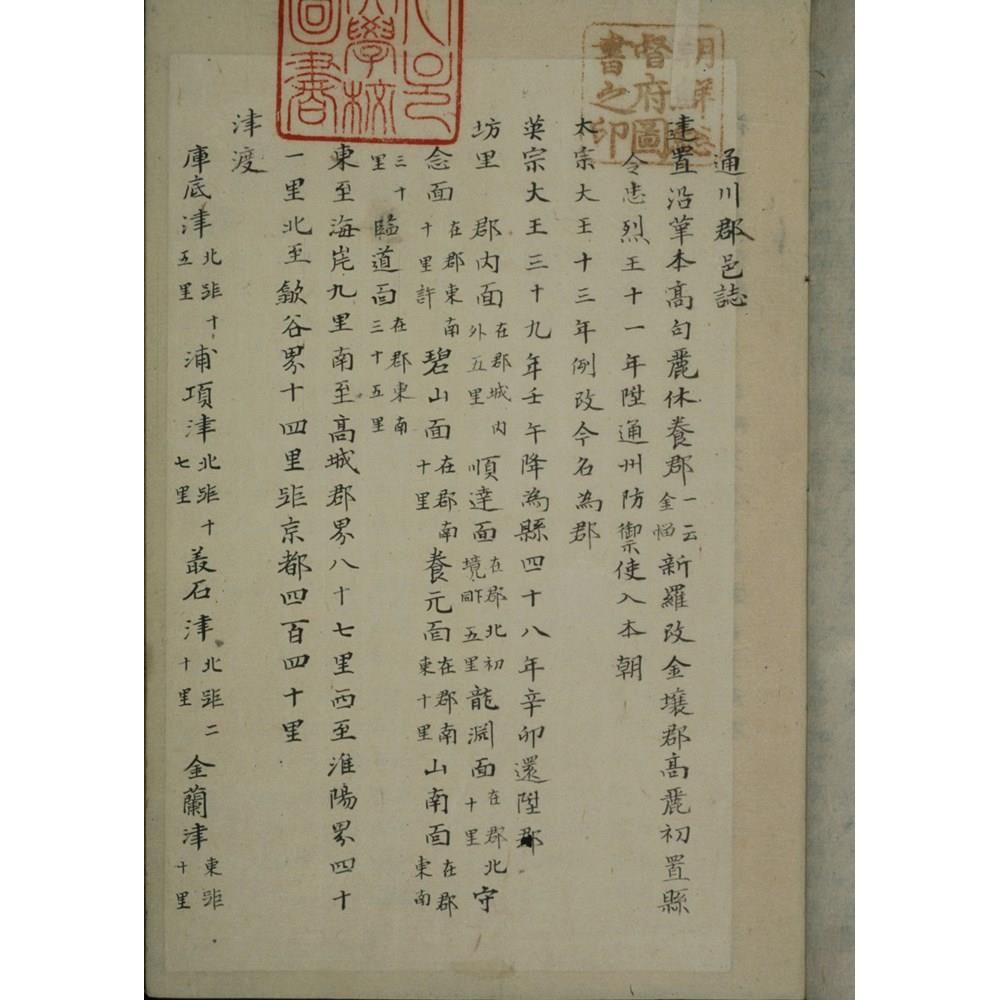 朝鮮總
督府圖
書之印
大學校
圖書
通川郡邑誌
建置沿革本高句麗休養郡一云金惱新羅改金壤郡高麗初置縣
令忠烈王十一年陞通州防禦使入本朝
太宗大王十三年例改今名為郡
英宗大王三十九年壬午降為縣四十八年辛卯還陞郡
坊里 郡內面在郡城內外五里順達面在郡北初境距五里龍淵面在郡北十里守
念面在郡東南十里許碧山面在郡南十里養元面在郡南東十里山南面在郡東南
三十里臨道面在郡東南三十五里
東至海岸九里南至高城郡界八十七里西至淮陽界四十
一里北至歙谷界十四里距京都四百四十里
津渡
庫底津北距十五里浦項津北距十七里叢石津北距二十里金蘭津東距十里